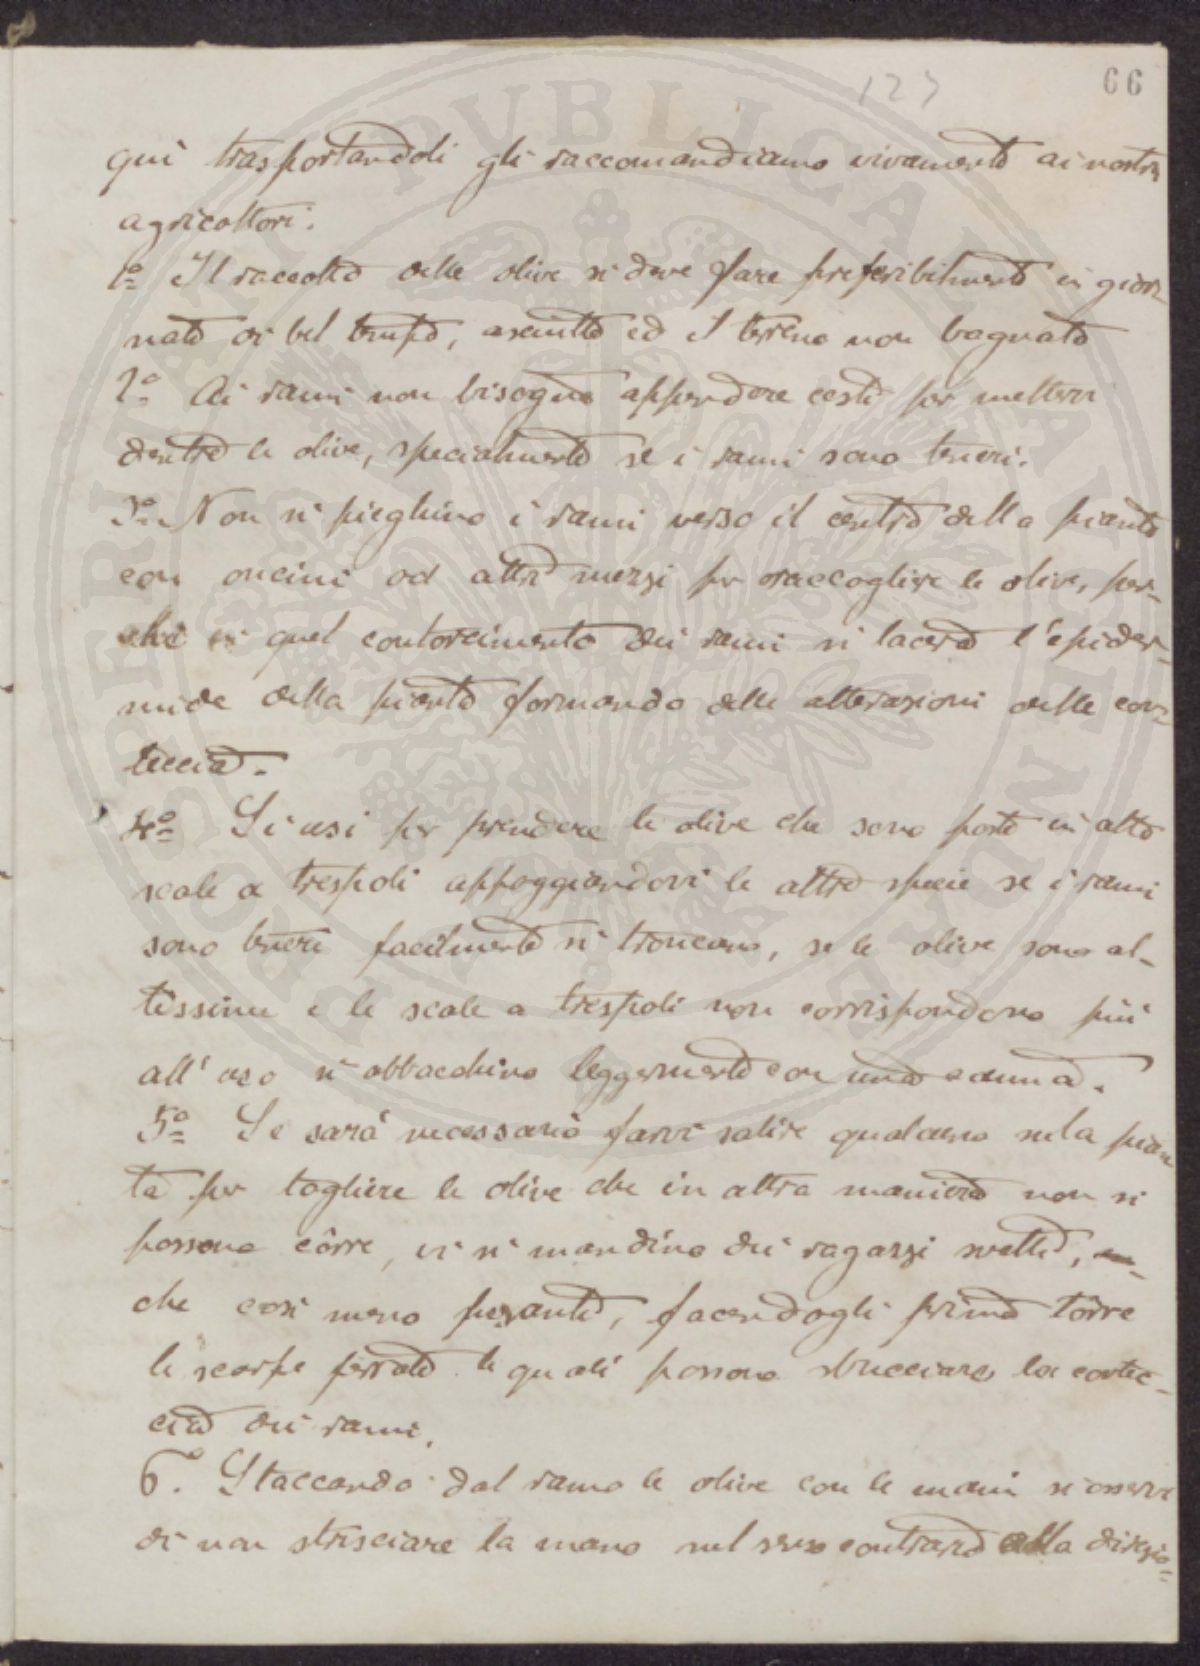 123 66
quì trasportandoli gli raccomandiamo vivamente ai nostri
agricoltori:
1º Il raccolto delle olive si deve fare preferibilmente in gior-
nate di bel tempo, asciutto ed il terreno non bagnato
2º Ai rami non bisogna appendere ceste per mettervi
dentro le olive, specialmente se i rami sono teneri.
3º Non si pieghino i rami verso il centro della pianta
con oncini od altri mezzi per raccogliere le olive, per-
chè in quel contorcimento dei rami si lacera l'epider-
mide della pianta formando delle alterazioni delle cor-
teccia.
4º Si usi per prendere le olive che sono poste in alto
scale a trespoli appoggiandovi le altre specie se i rami
sono teneri facilmente si troncano, se le olive sono al-
tissime e le scale a trespoli non corrispondono più
all'uso si abbacchino leggermente con una canna.
5º Se sarà necessario farvi salire qualcuno sulla pian
ta per togliere le olive che in altra maniera non si
possono côrre, vi si mandino dei ragazzi svelti,
che così meno pesanti, facendogli prima tôrre
le scarpe ferrate le quali possono sbucciare la cortec-
cia dei rami.
6º. Staccando dal ramo le olive con le mani si osservi
di non strisciare la mano nel senso contrario alla direzio-
PROSPERITATI PUBLICAE AUGENDAE